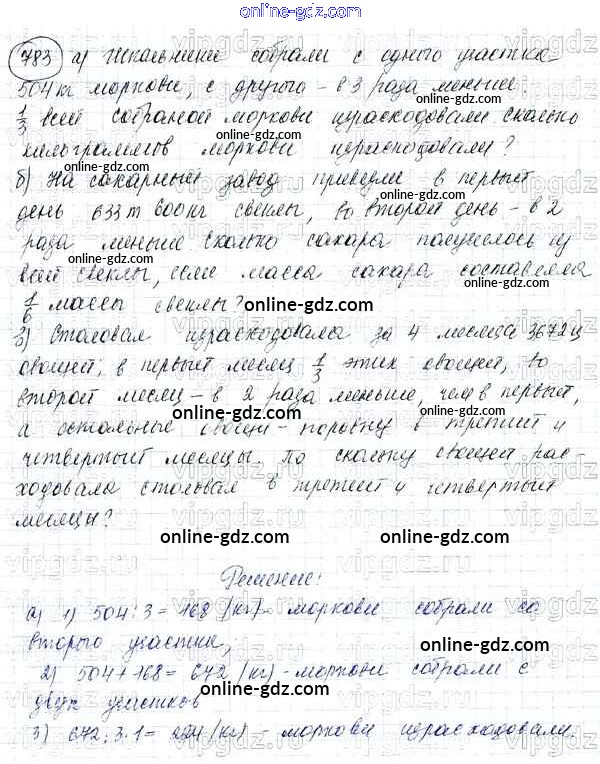 online-gdz.com
783 а) Школьники собрали с одного участка
504 кг моркови, с другого - в 3 раза меньше.
1/3 всей собраной моркови израсходовали сколько
online-gdz.com
килограммов моркови израсходовали?
online-gdz.com
б) На сахарный завод привезли в первый
день 633 т 600 кг свеклы, во второй день - в 2
online-gdz.com
раза меньше сколько сахара получилось из
всей свеклы, если масса сахара составляла
1/6 массы свеклы?
online-gdz.com
в) Столовая израсходовала за 4 месяца 3672 ц
овощей; в первый месяц 1/3 этих овощей, во
второй месяц - в 2 раза меньше, чем в первый,
online-gdz.com
а остальные овощи - поровну в третий и
четвертый месяцы. По скольку овощей рас-
ходовала столовая в третий и четвертый
месяцы?
online-gdz.com
online-gdz.com
Решение:
а) 1) 504:3=168 (кг) - моркови собрали со
второго участка;
online-gdz.com
2) 504+168= 672 (кг) - моркови собрали с
двух участков
online-gdz.com
3) 672:3·1= 224 (кг) - моркови израсходовали.
online-gdz.com